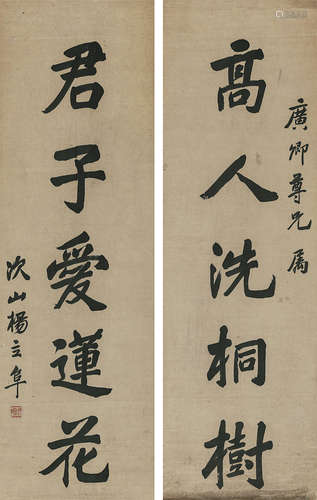 廣卿尊兄属
高人洗桐樹
君子愛蓮花
次山楊立阜